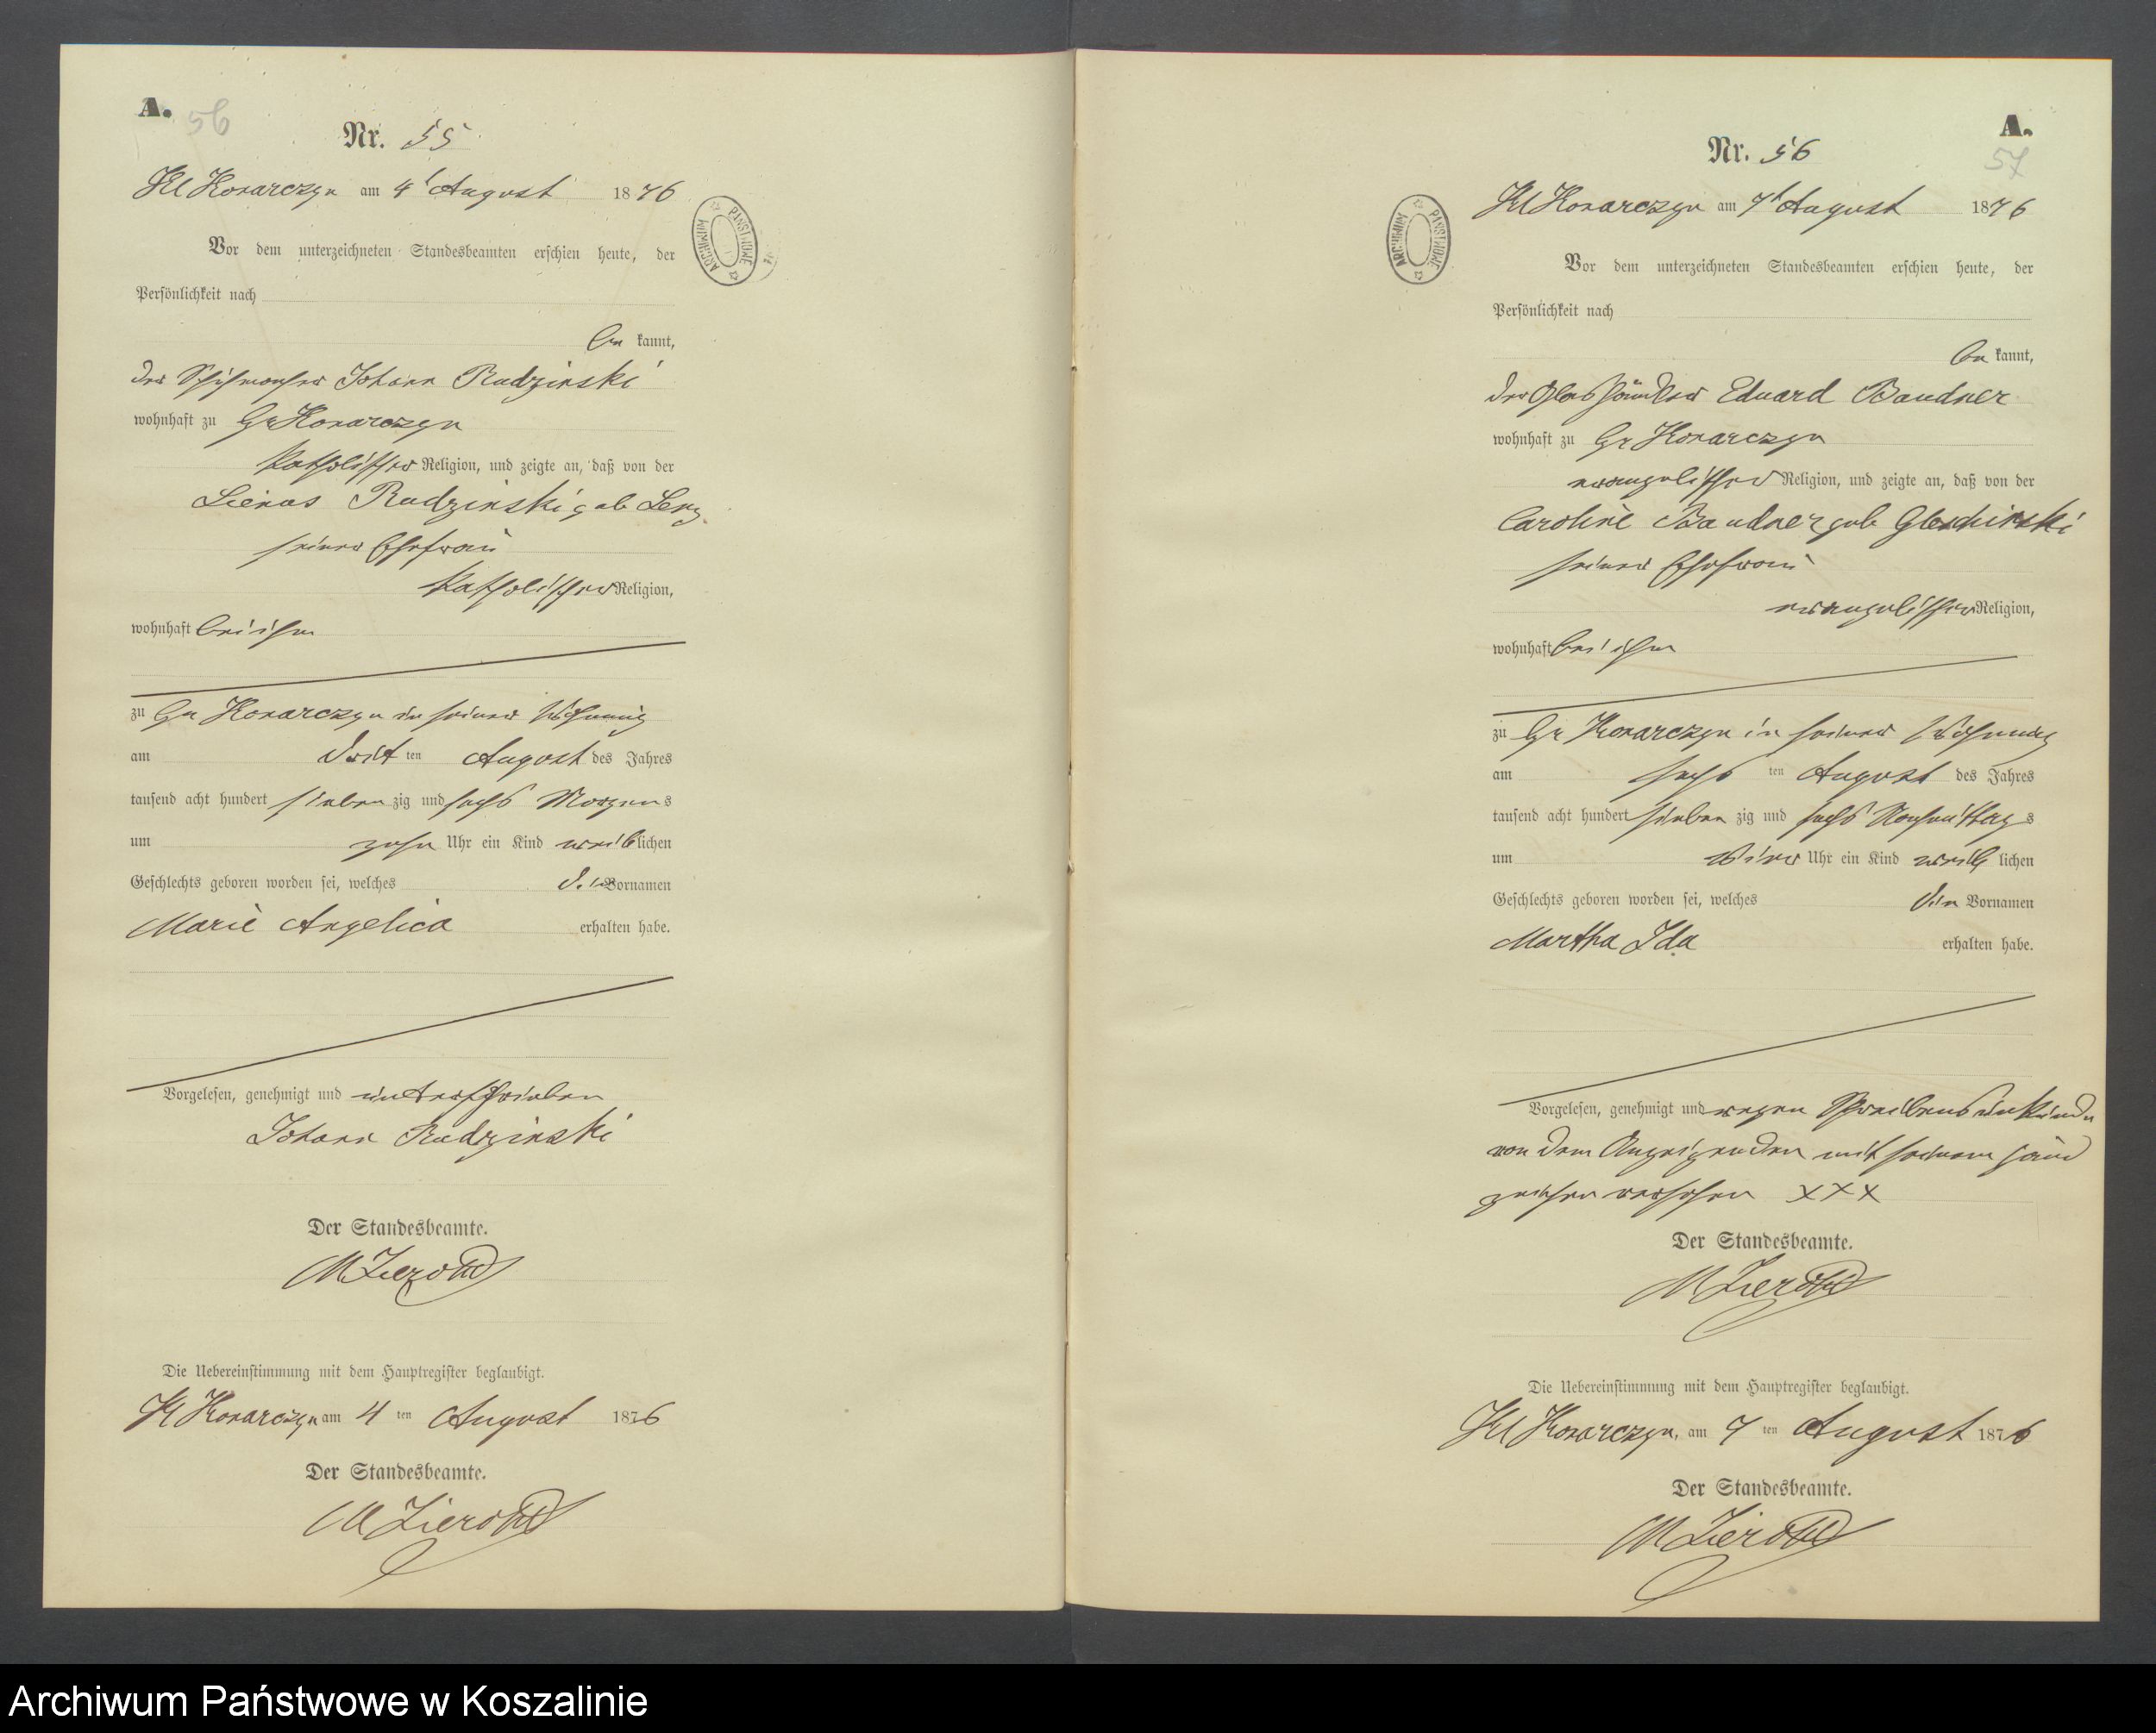 A.
56
Nr. 55
Kl Konarczyn am 4t August 1876
Vor dem unterzeichneten Standesbeamten erschien heute, der
Persönlichkeit nach
be kannt,
der Schuhmacher Johann Rudzinski
wohnhaft zu Gr Konarczyn
katholischer Religion, und zeigte an, daß von der
Rudzinski geb Lenz
seiner Ehefrau
katholischer Religion,
wohnhaft bei ihm
zu Gr Konarczyn in seiner Wohnung
am dritten August des Jahres
tausend acht hundert siebenzig und sechs Morgens
um zehn Uhr ein Kind weiblichen
Geschlechts geboren worden sei, welches die Vornamen
Marie Angelica erhalten habe.
Vorgelesen, genehmigt und unterschrieben
Johann Rudzinski
Der Standesbeamte.
Die Uebereinstimmung mit dem Hauptregister beglaubigt.
Kl Konarczyn am 4 ten August 1876
Der Standesbeamte.
ARCHIWUM PAŃSTWOWE
A.
57
Nr. 56
Kl Konarczyn am 7t August 1876
Vor dem unterzeichneten Standesbeamten erschien heute, der
Persönlichkeit nach
be kannt,
der Glashändler Eduard Baudner
wohnhaft zu Gr Konarczyn
evangelischer Religion, und zeigte an, daß von der
Caroline Baudner geb
seiner Ehefrau
evangelischer Religion,
wohnhaft bei ihm
zu Gr Konarczyn in seiner Wohnung
am sechs ten August des Jahres
tausend acht hundert sieben zig und sechs Nachmittags
um vier Uhr ein Kind weib lichen
Geschlechts geboren worden sei, welches die Vornamen
Martha Ida erhalten habe.
Vorgelesen, genehmigt und wegen Schreibensunkunde
von dem Anzeigenden mit seinem Hand
zeichen versehen XXX
Der Standesbeamte.
Die Uebereinstimmung mit dem Hauptregister beglaubigt.
Kl Konarczyn, am 7 ten August 1876
Der Standesbeamte.
ARCHIWUM PAŃSTWOWE
Archiwum Państwowe w Koszalinie